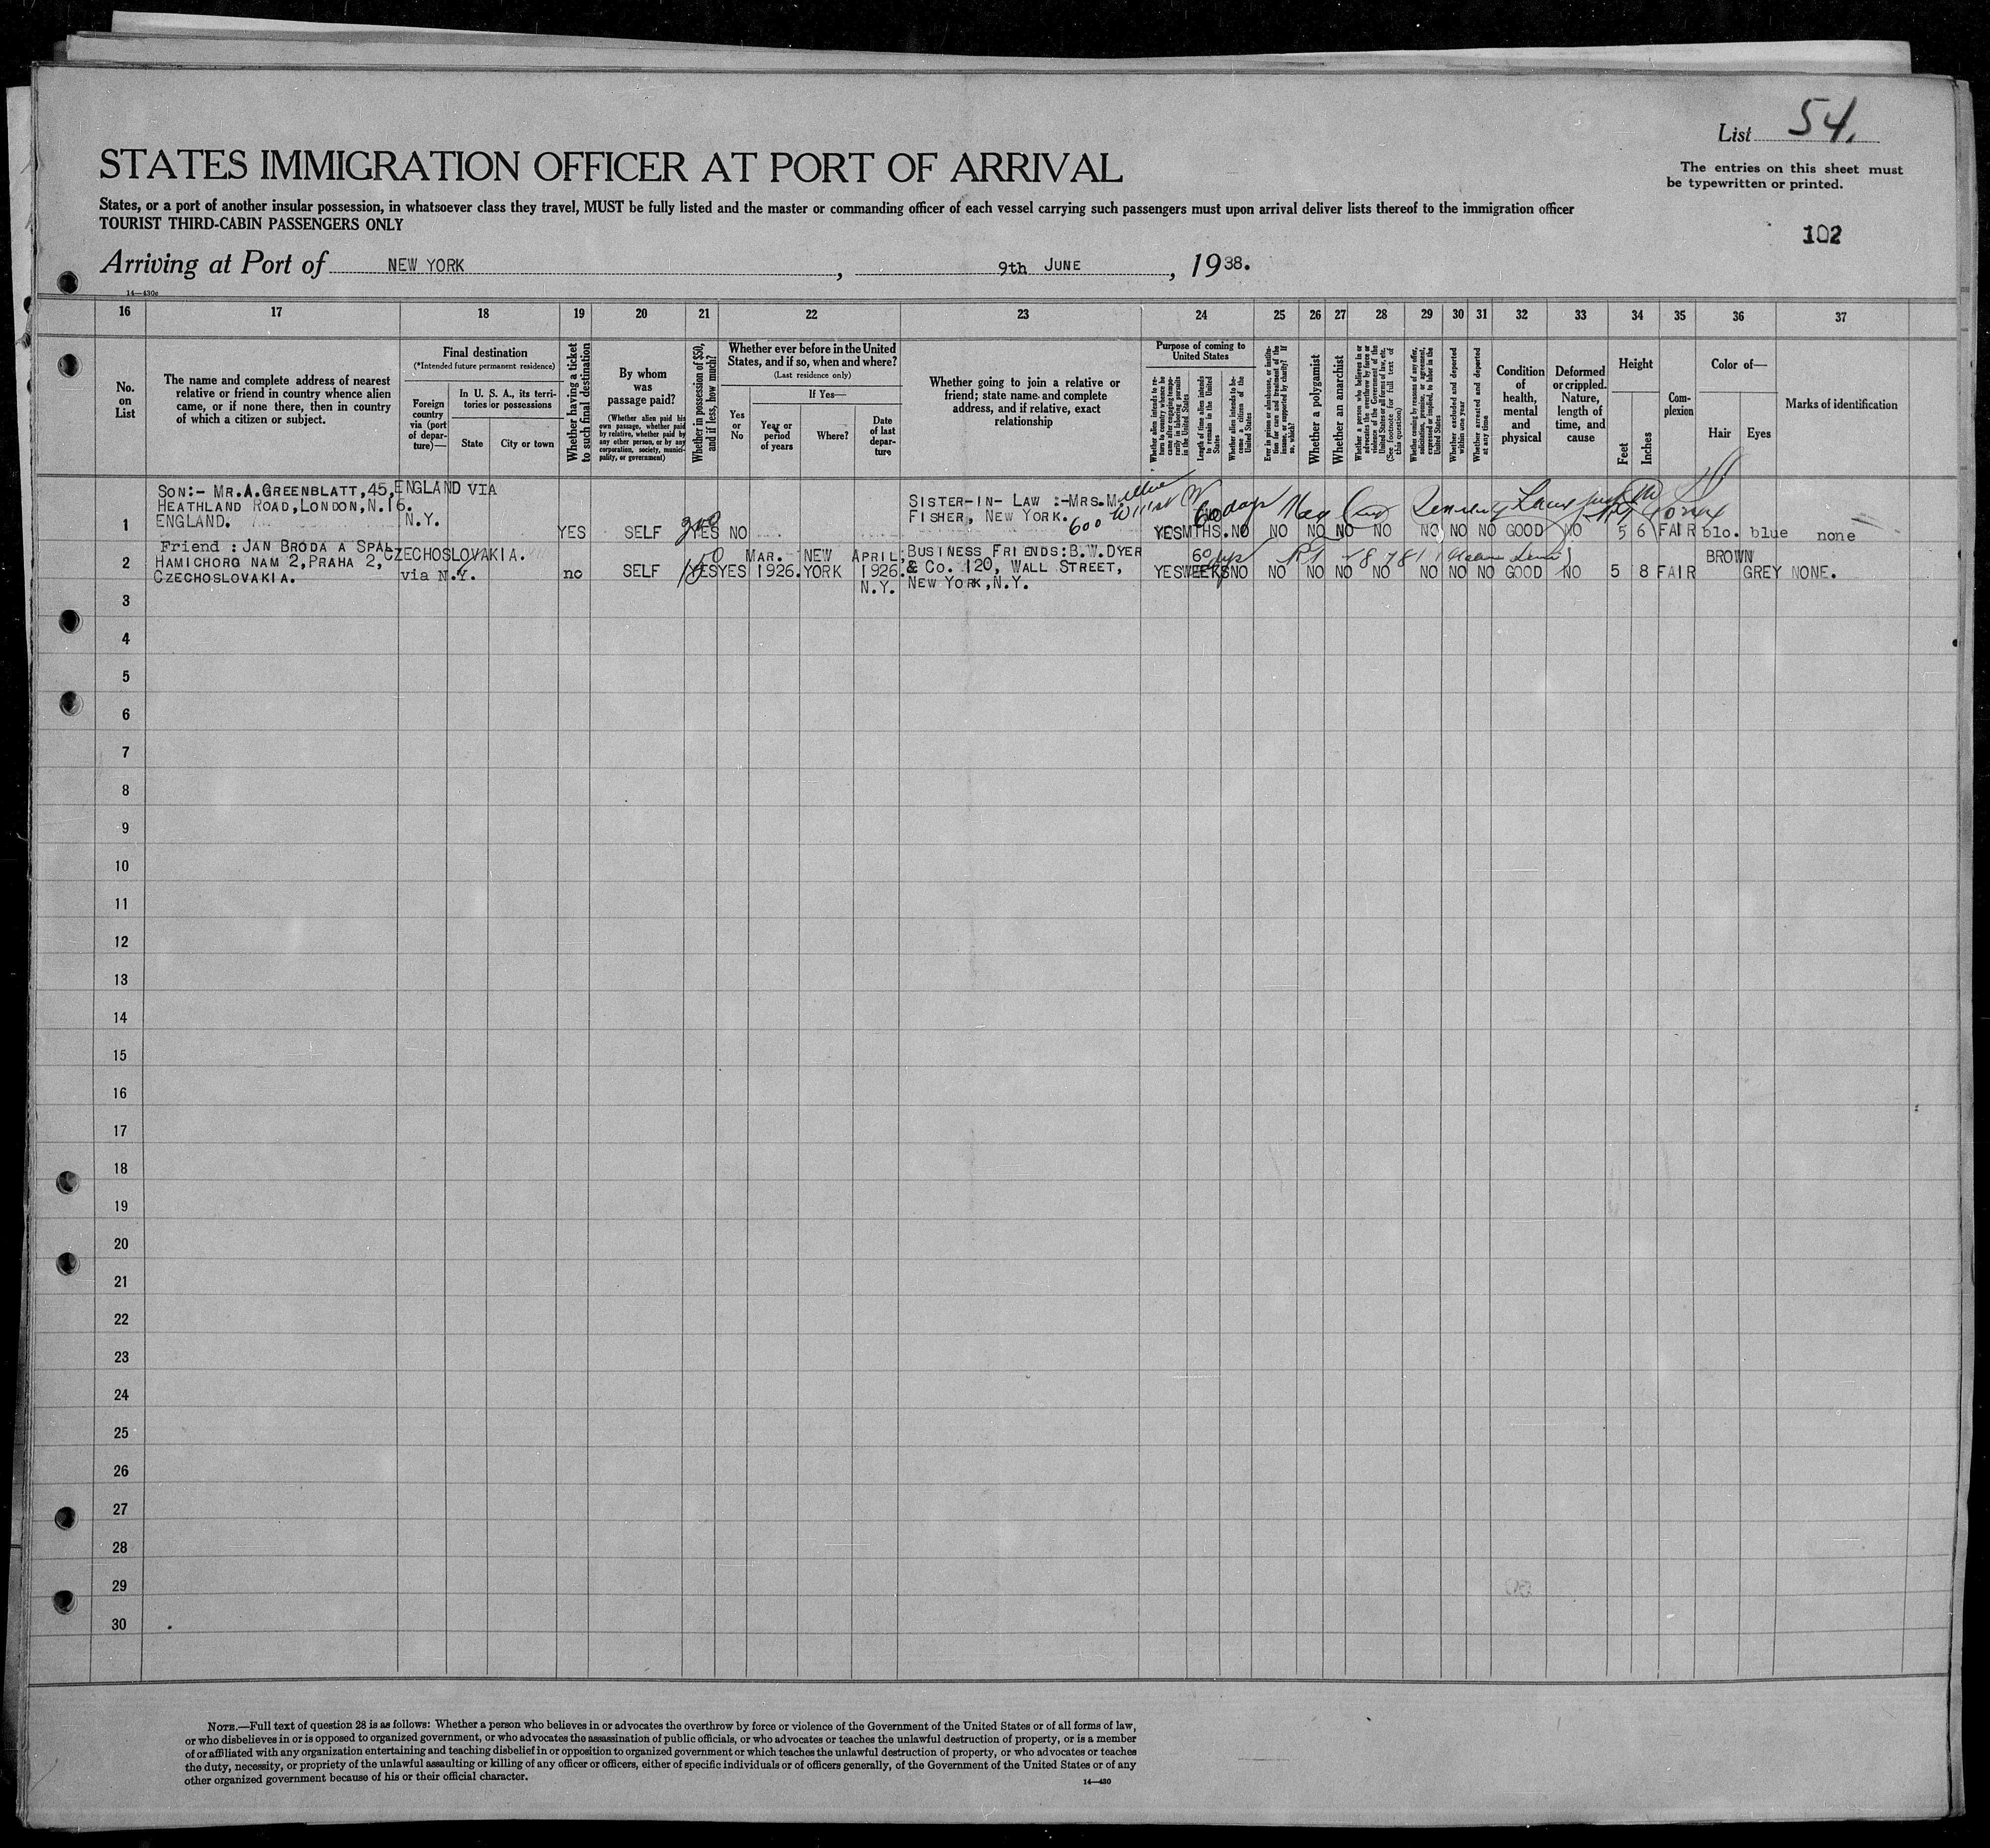 List 54.
STATES IMMIGRATION OFFICER AT PORT OF ARRIVAL
The entries on this sheet must
be typewritten or printed.
States, or a port of another insular possession, in whatsoever class they travel, MUST be fully listed and the master or commanding officer of each vessel carrying such passengers must upon arrival deliver lists thereof to the immigration officer
TOURIST THIRD-CABIN PASSENGERS ONLY
102
Arriving at Port of NEW YORK, 9th JUNE, 1938.
14—430c
16 17 18 19 20 21 22 23 24 25 26 27 28 29 30 31 32 33 34 35 36 37
No. on List
The name and complete address of nearest
relative or friend in country whence alien
came, or if none there, then in country
of which a citizen or subject.
Final destination
(*Intended future permanent residence)
Foreign country via (port of departure)—
In U. S. A., its territories or possessions
State
City or town
Whether having a ticket to such final destination
By whom was passage paid?
(Whether alien paid his own passage, whether paid by relative, whether paid by any other person, or by any corporation, society, municipality, or government)
Whether in possession of $50, and if less, how much?
Whether ever before in the United
States, and if so, when and where?
(Last residence only)
Yes or No
If Yes—
Year or period of years
Where?
Date of last departure
Whether going to join a relative or
friend; state name and complete
address, and if relative, exact
relationship
Purpose of coming to United States
Whether alien intends to return to country whence he came after engaging temporarily in laboring pursuits in the United States
Length of time alien intends to remain in the United States
Whether alien intends to become a citizen of the United States
Ever in prison or almshouse, or institution for care and treatment of the insane, or supported by charity? If so, which?
Whether a polygamist
Whether an anarchist
Whether a person who believes in or advocates the overthrow by force or violence of the Government of the United States or all forms of law, etc. (See footnote for full text of this question)
Whether coming by reason of any offer, solicitation, promise, or agreement, expressed or implied, to labor in the United States
Whether excluded and deported within one year
Whether arrested and deported at any time
Condition of health, mental and physical
Deformed or crippled. Nature, length of time, and cause
Height
Feet
Inches
Complexion
Color of—
Hair
Eyes
Marks of identification
SON:- MR.A.GREENBLATT,45, ENGLAND VIA SISTER-IN- LAW :-MRS.M.
HEATHLAND ROAD,LONDON,N.16. FISHER, NEW YORK. 600 60 days
ENGLAND. N.Y.
1 YES SELF YES NO YES MTHS. NO NO NO NO NO NO NO NO GOOD NO 5 6 FAIR blo. blue none
Friend : JAN BRODA A SPAL CZECHOSLOVAKIA. MAR. NEW APRIL BUSINESS FRIENDS:B.W.DYER 60 dys BROWN
2 HAMICHORG NAM 2,PRAHA 2, no SELF 150 YES YES 1926. YORK 1926. & CO. 120, WALL STREET, YES WEEKS NO NO NO NO NO NO NO NO GOOD NO 5 8 FAIR GREY NONE.
CZECHOSLOVAKIA. via N.Y. N.Y. NEW YORK,N.Y.
3
4
5
6
7
8
9
10
11
12
13
14
15
16
17
18
19
20
21
22
23
24
25
26
27
28
29
30
NOTE.—Full text of question 28 is as follows: Whether a person who believes in or advocates the overthrow by force or violence of the Government of the United States or of all forms of law,
or who disbelieves in or is opposed to organized government, or who advocates the assassination of public officials, or who advocates or teaches the unlawful destruction of property, or is a member
of or affiliated with any organization entertaining and teaching disbelief in or opposition to organized government or which teaches the unlawful destruction of property, or who advocates or teaches
the duty, necessity, or propriety of the unlawful assaulting or killing of any officer or officers, either of specific individuals or of officers generally, of the Government of the United States or of any
other organized government because of his or their official character.
14—430